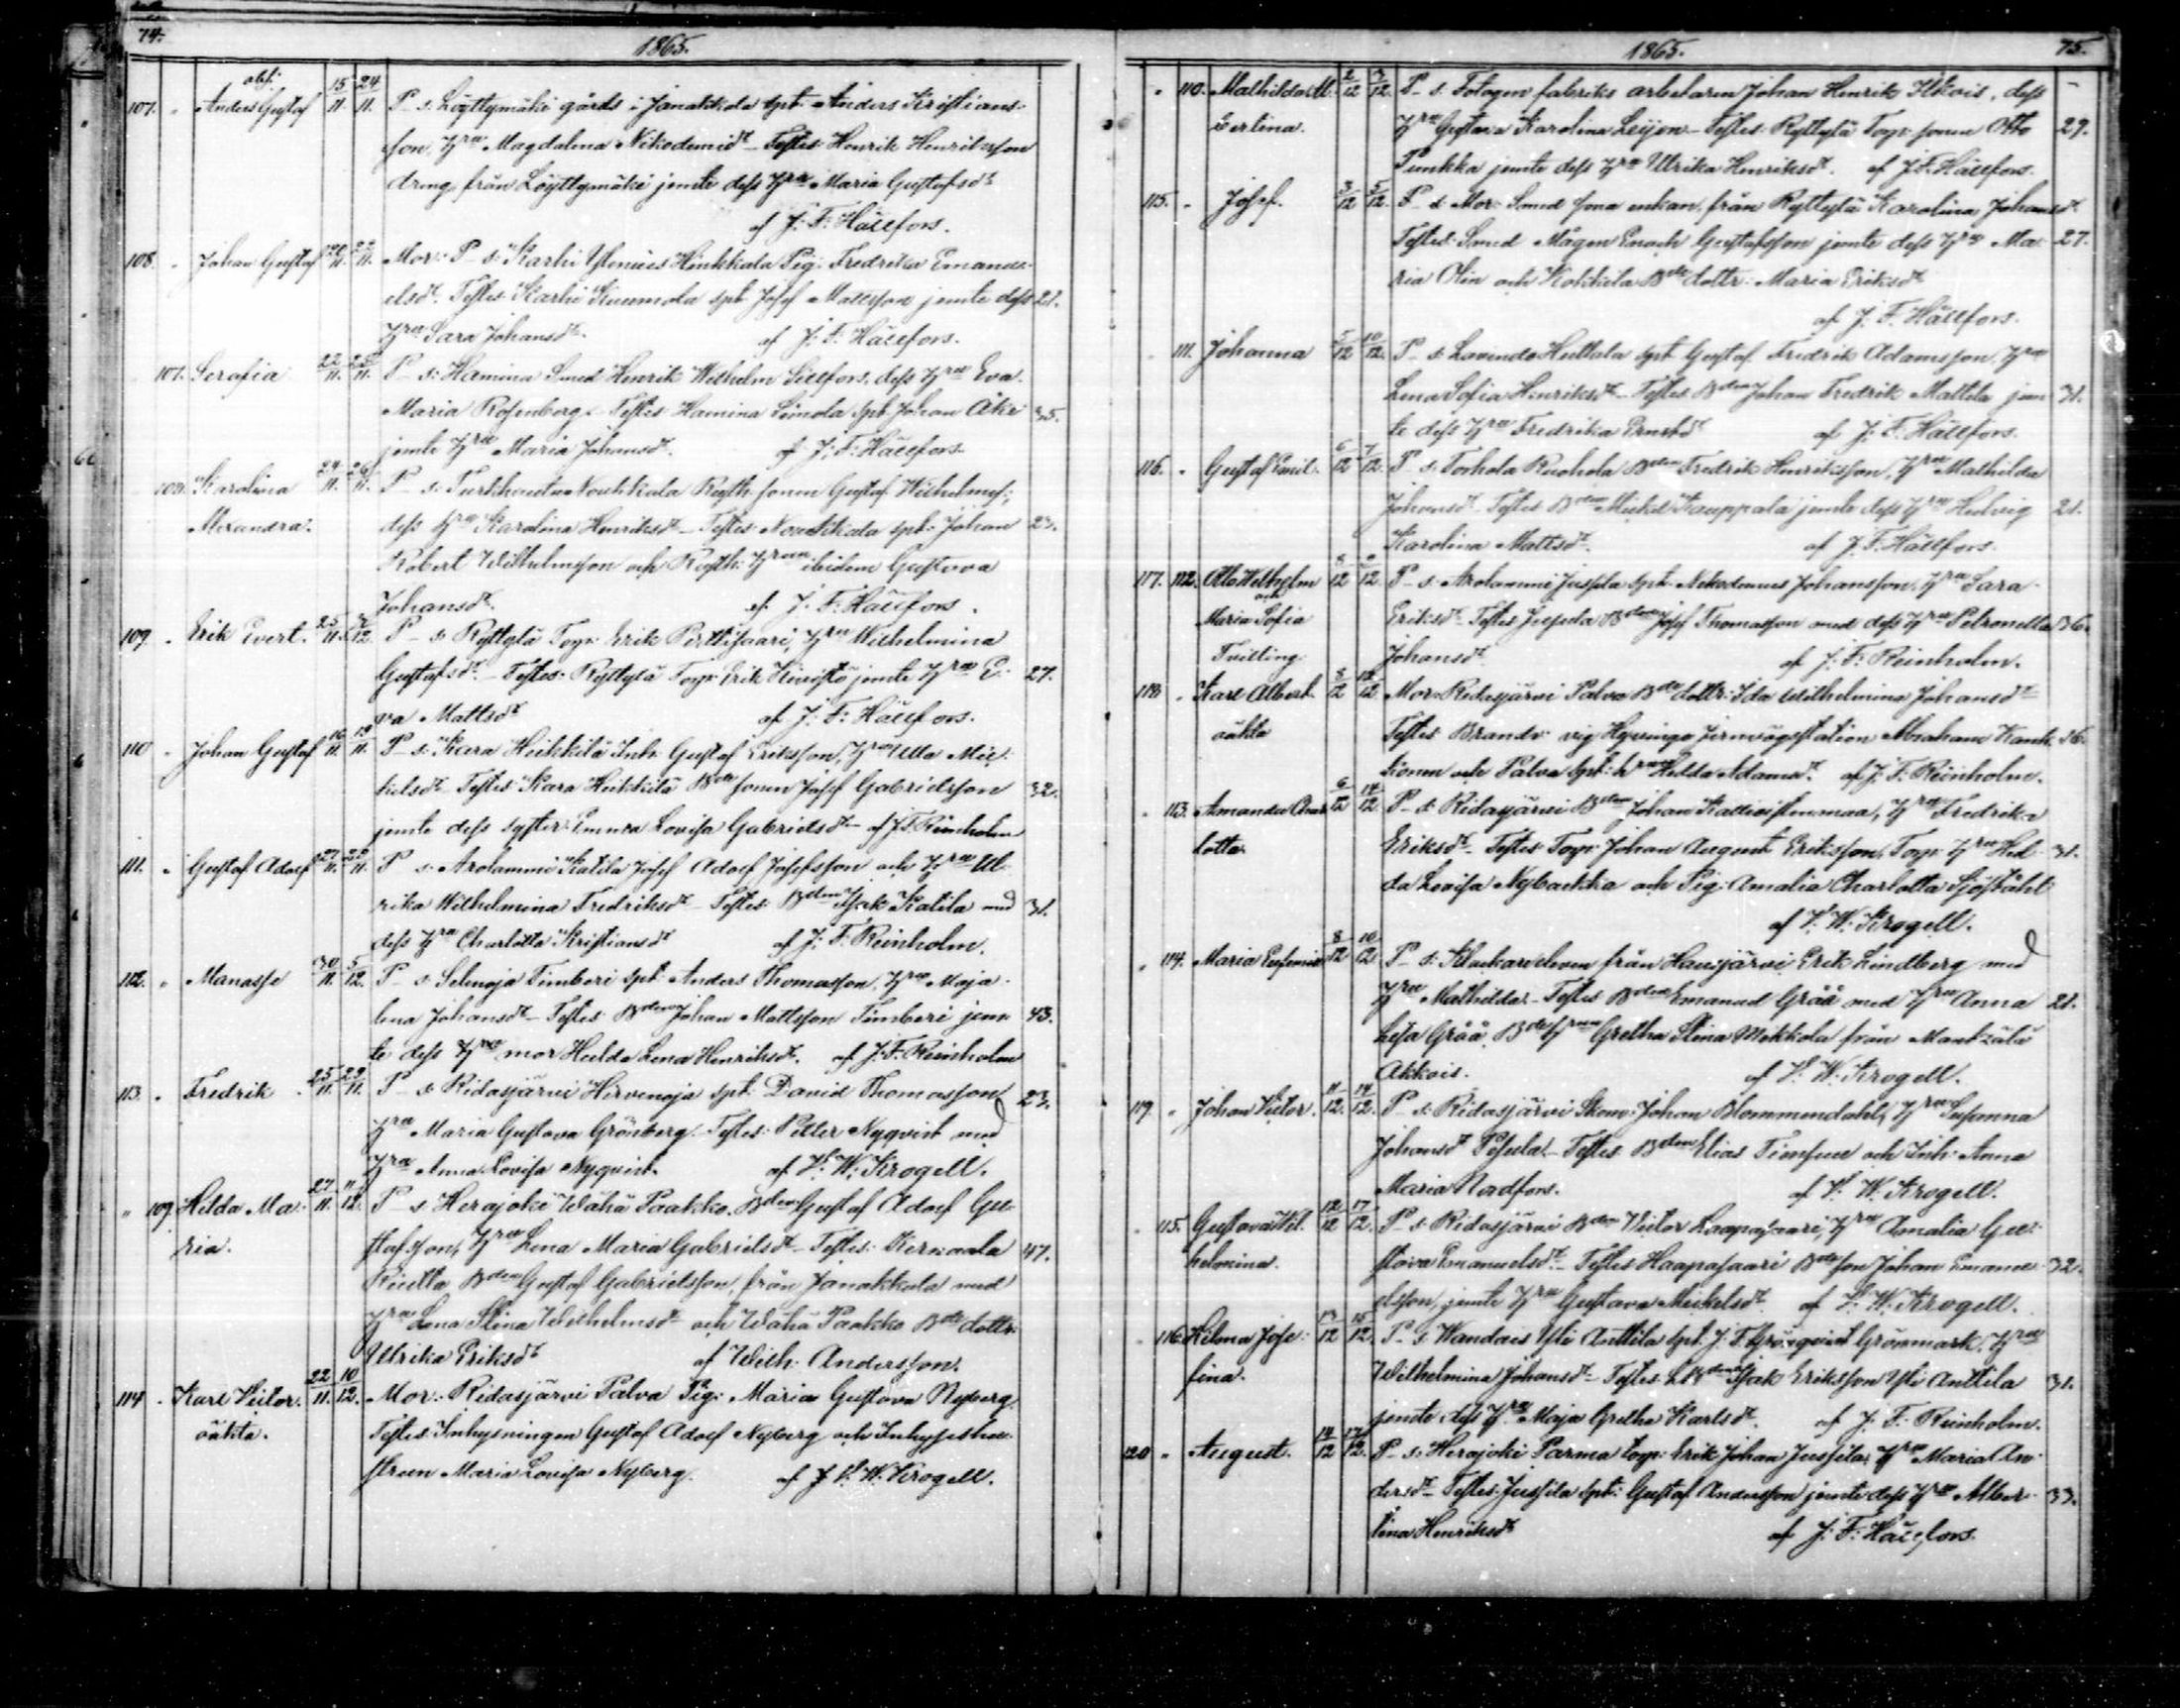 74.
1865.
abf:
107. " Anders Gustaf 15/11. 24/11. P_ s: Löyttymäki gårds i Janakkala spt. Anders Kristians-
son, Hru Magdalena Nikodemidr. Testes: Henrik Henriksson
dräng från Löyttymäki jemte dess Hru Maria Gustafsdr
af J: F: Hällfors.
108. " Johan Gustaf 20/11. 22/11. Mor: P_ s: Karhi Heikkala Pig: Fredrika Emanu-
elsdr. Testes: Karhi spt. Josef Mattsson jemte dess 21.
Hru Sara Johansdr. af J: F: Hällfors.
107. Serafia 22/11. 25/11. P_ s: Hamina Smed Henrik Wilhelm Sillfors, dess Hru Eva
Maria Rosenberg. Testes Hamina Seinola spt. Johan Åke 35.
jemte Hru Maria Johansdr. af J: F: Hällfors.
108. Karolina 24/11. 26/11. P_ s: Turkhauta Nouhkala Rusth. sonen Gustaf Wilhelmss:,
Alexandra. dess Hru Karolina Henriksdr. Testes Nouhkala spt. Johan 23.
Robert Wilhelmsson och Rusth: Hrun ibidem Gustava
Johansdr. af J: F: Hällfors.
109. " Erik Evert. 25/11. /12. P_ s: Ryttylä Torp: Erik Perttisaari, Hru Wilhelmina
Gustafsdr. Testes: Ryttylä Torp: Erik Kivistö jemte Hru E- 27.
va Mattsdr af J: F: Hällfors.
110 " Johan Gustaf 16/11. 19/11. P_ s: Kara Heikkilä Inh: Gustaf Eriksson, Hru Ulla Mic-
kelsdr. Testes Kara Heikkilä Bde sonen Josef Gabrielsson 32.
jemte dess syster Emma Lovisa Gabrielsdr. af J: F: Reinholm
111. " Gustaf Adolf 27/11. /11. P_ s: Arolammi Katila Josef Adolf Josefsson och Hru Ul-
rika Wilhelmina Fredriksdr. Testes Bden Isak Katila med 31.
dess Hru Charlotta Kristiansdr af J: F: Reinholm.
112. " Manasse 30/11. 5/12. P_ s: Selenoja Timberi spt: Anders Thomasson, Hru Maja-
lena Johansdr. Testes: Bden Johan Mattsson Timberi jem- 43.
te dess mor Hulda Lena Henriksdr. af J: F: Reinholm
113. " Fredrik 25/11. 29/11. P_ s: Ridasjärvi Hirvenoja spt. David Thomasson 23.
Hru Maria Gustava Grönberg. Testes: Petter Nyqvist med
Hru Anna Lovisa Nyqvist. af V: W: Krogell.
" 109. Hilda Ma- 27/11. /12. P_ s Herajoki Wähä Paakko Bden Gustaf Adolf Gu-
ria. stafsson, Hru Lena Maria Gabrielsdr. Testes: Kernaala 47.
Bden Gustaf Gabrielsson, från Janakkala med
Hru Lena Stina Wilhelmsdr och Wähä Paakko Bde dottr.
Ulrika Eriksdr af Wilh: Andersson.
114 " Karl Victor. 22/11. 10/12. Mor: Ridasjärvi Palva Pig: Maria Gustava Nyberg.
oäkta. Testes: Inhysningen Gustaf Adolf Nyberg och Inhyseshu-
strun Maria Lovisa Nyberg. af V: W: Krogell.
1865.
75.
" 110. Mathilda M. 2/12 3/12. P_ s. Fotogen fabriks arbetaren Johan Henrik Ilkois, dess
Berlina. Hru Gustava Karolina Leijon. Testes: Ryttylä Torp: sonen Otto 29.
Punkka jemte dess Hru Ulrika Henriksdr. af J: F: Hällfors.
115. " Josef. 3/12 5/12. P_ s: Mor: Smed sona enkan, från Ryttylä Karolina Johansdr.
Testes: Smed Mågen Enoch Gustafsson jemte dess Hru Ma- 27.
ria Olin och Kokkila Bde dottr: Maria Eriksdr
af J: F: Hällfors.
111. Johanna 5/12 10/12. P_ s: Huttala spt. Gustaf Fredrik Adamsson, Hru
Lena Sofia Henriksdr. Testes Bden Johan Fredrik Mattila jem 31.
te dess Hru Fredrika Ernstdr af J: F: Hällfors.
116. " Gustaf Emil. 6/12 7/12. P_ s: Torhola Ruohola Bden Fredrik Henriksson, Hru Mathilda
Johansdr. Testes Bden Mickel Kauppala jemte dess Hru Hedvig 21.
Karolina Mattsdr. af J: F: Hällfors.
117. 112. Otto Wilhelm 8/12 /12. P_ s: Arolammi Jussila spt. Nikodemus Johansson, Hru Sara
och
Maria Sofia Eriksdr. Testes Jussila Bden Josef Thomasson med dess Hru Petronella 36.
Tvilling. Johansdr. af J: F: Reinholm.
118 " Karl Albert. 8/12 /12 Mor: Ridasjärvi Palva Bde dottr: Ida Wilhelmina Johansdr
oäkta Testes Brandv: vig Hyvinge Jernvägsstation Abraham Kank- 36.
konen och Palva spt: Hru Hilda Adamsdr. af J: F: Reinholm.
" 113. Amanda Char- 6/12 14/12 P_ s: Ridasjärvi Bden Johan Kallioistenmaa, Hru Fredrika
lotta. Eriksdr. Testes Torp: Johan August Eriksson, Torp: Hru Hil- 31.
da Lovisa Nybacka och Pig: Amalia Charlotta Sjöståhl
af V: W: Krogell.
" 114. Maria Eufemia 8/12 10/12 P_ s: Klockareeleven från Hausjärvi Erik Lindberg med
Hru Mathilda. Testes Bden Emanuel Gråå med Hru Anna 21.
Lisa Gråå. Bde Hrun Gretha Stina Mokkola från Mäntsälä
Akkois. af V: W: Krogell.
119. " Johan Victor. 11/12. 14/12. P_ s: Ridasjärvi Skom: Johan Blommendahl, Hru Susanna
Johansdr. Testes Bden Elias och Inh: Anna
Maria Nordfors. af V: W: Krogell.
" 115. Gustava Wil- 12/12 17/12. P_ s: Ridasjärvi Bden Victor Haapasaari, Hru Amalia Gu-
helmina. stava Emanuelsdr. Testes Haapasaari Bde son Johan Emanu- 32.
elsson, jemte Hru Gustava Mickelsdr. af V: W: Krogell.
" 116. Hilma Jose- 13/12 15/12. P_ s: Wandais Yli Anttila spt. J: F: Grönqvist Grönmark, Hru
fina. Wilhelmina Johansdr. Testes Bden Isak Eriksson Yli Anttila 31.
jemte dess Hru Maja Gretha Karlsdr. af J: F: Reinholm.
120 " August. 14/12 17/12. P_ s: Herajoki Parma torp: Erik Johan Jussila, Hru Maria An-
dersdr. Testes: Jussila spt: Gustaf Andersson jemte dess Hru Alber- 33.
tina Henriksdr af J: F: Hällfors.